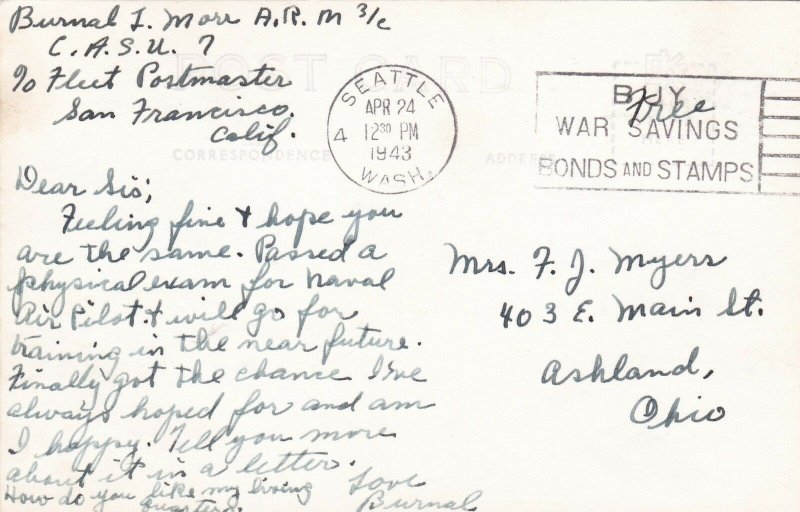 Burnal I. Morr A.R.M 3/c
C.A.S.U. 7
℅ Fleet Postmaster
San Francisco.
Calif.
POST CARD
CORRESPONDENCE
ADDRESS
SEATTLE
APR 24
4 12 30 PM
1943
WASH.
Free
BUY
WAR SAVINGS
BONDS AND STAMPS
Dear Sis;
Feeling fine & hope you
are the same. Passed a
physical exam for Naval
Air Pilot & will go for
training in the near future.
Finally got the chance I've
always hoped for and am
I happy. Tell you more
about it in a letter.
Love
Burnal
How do you like my living
quarters.
Mrs. F. J. Myers
403 E. Main St.
Ashland,
Ohio